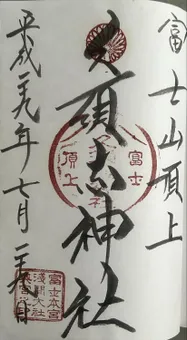 富士山頂上
久須志神社
平成廿九年七月廿九日
富士
頂上
富士本宮
淺間大社